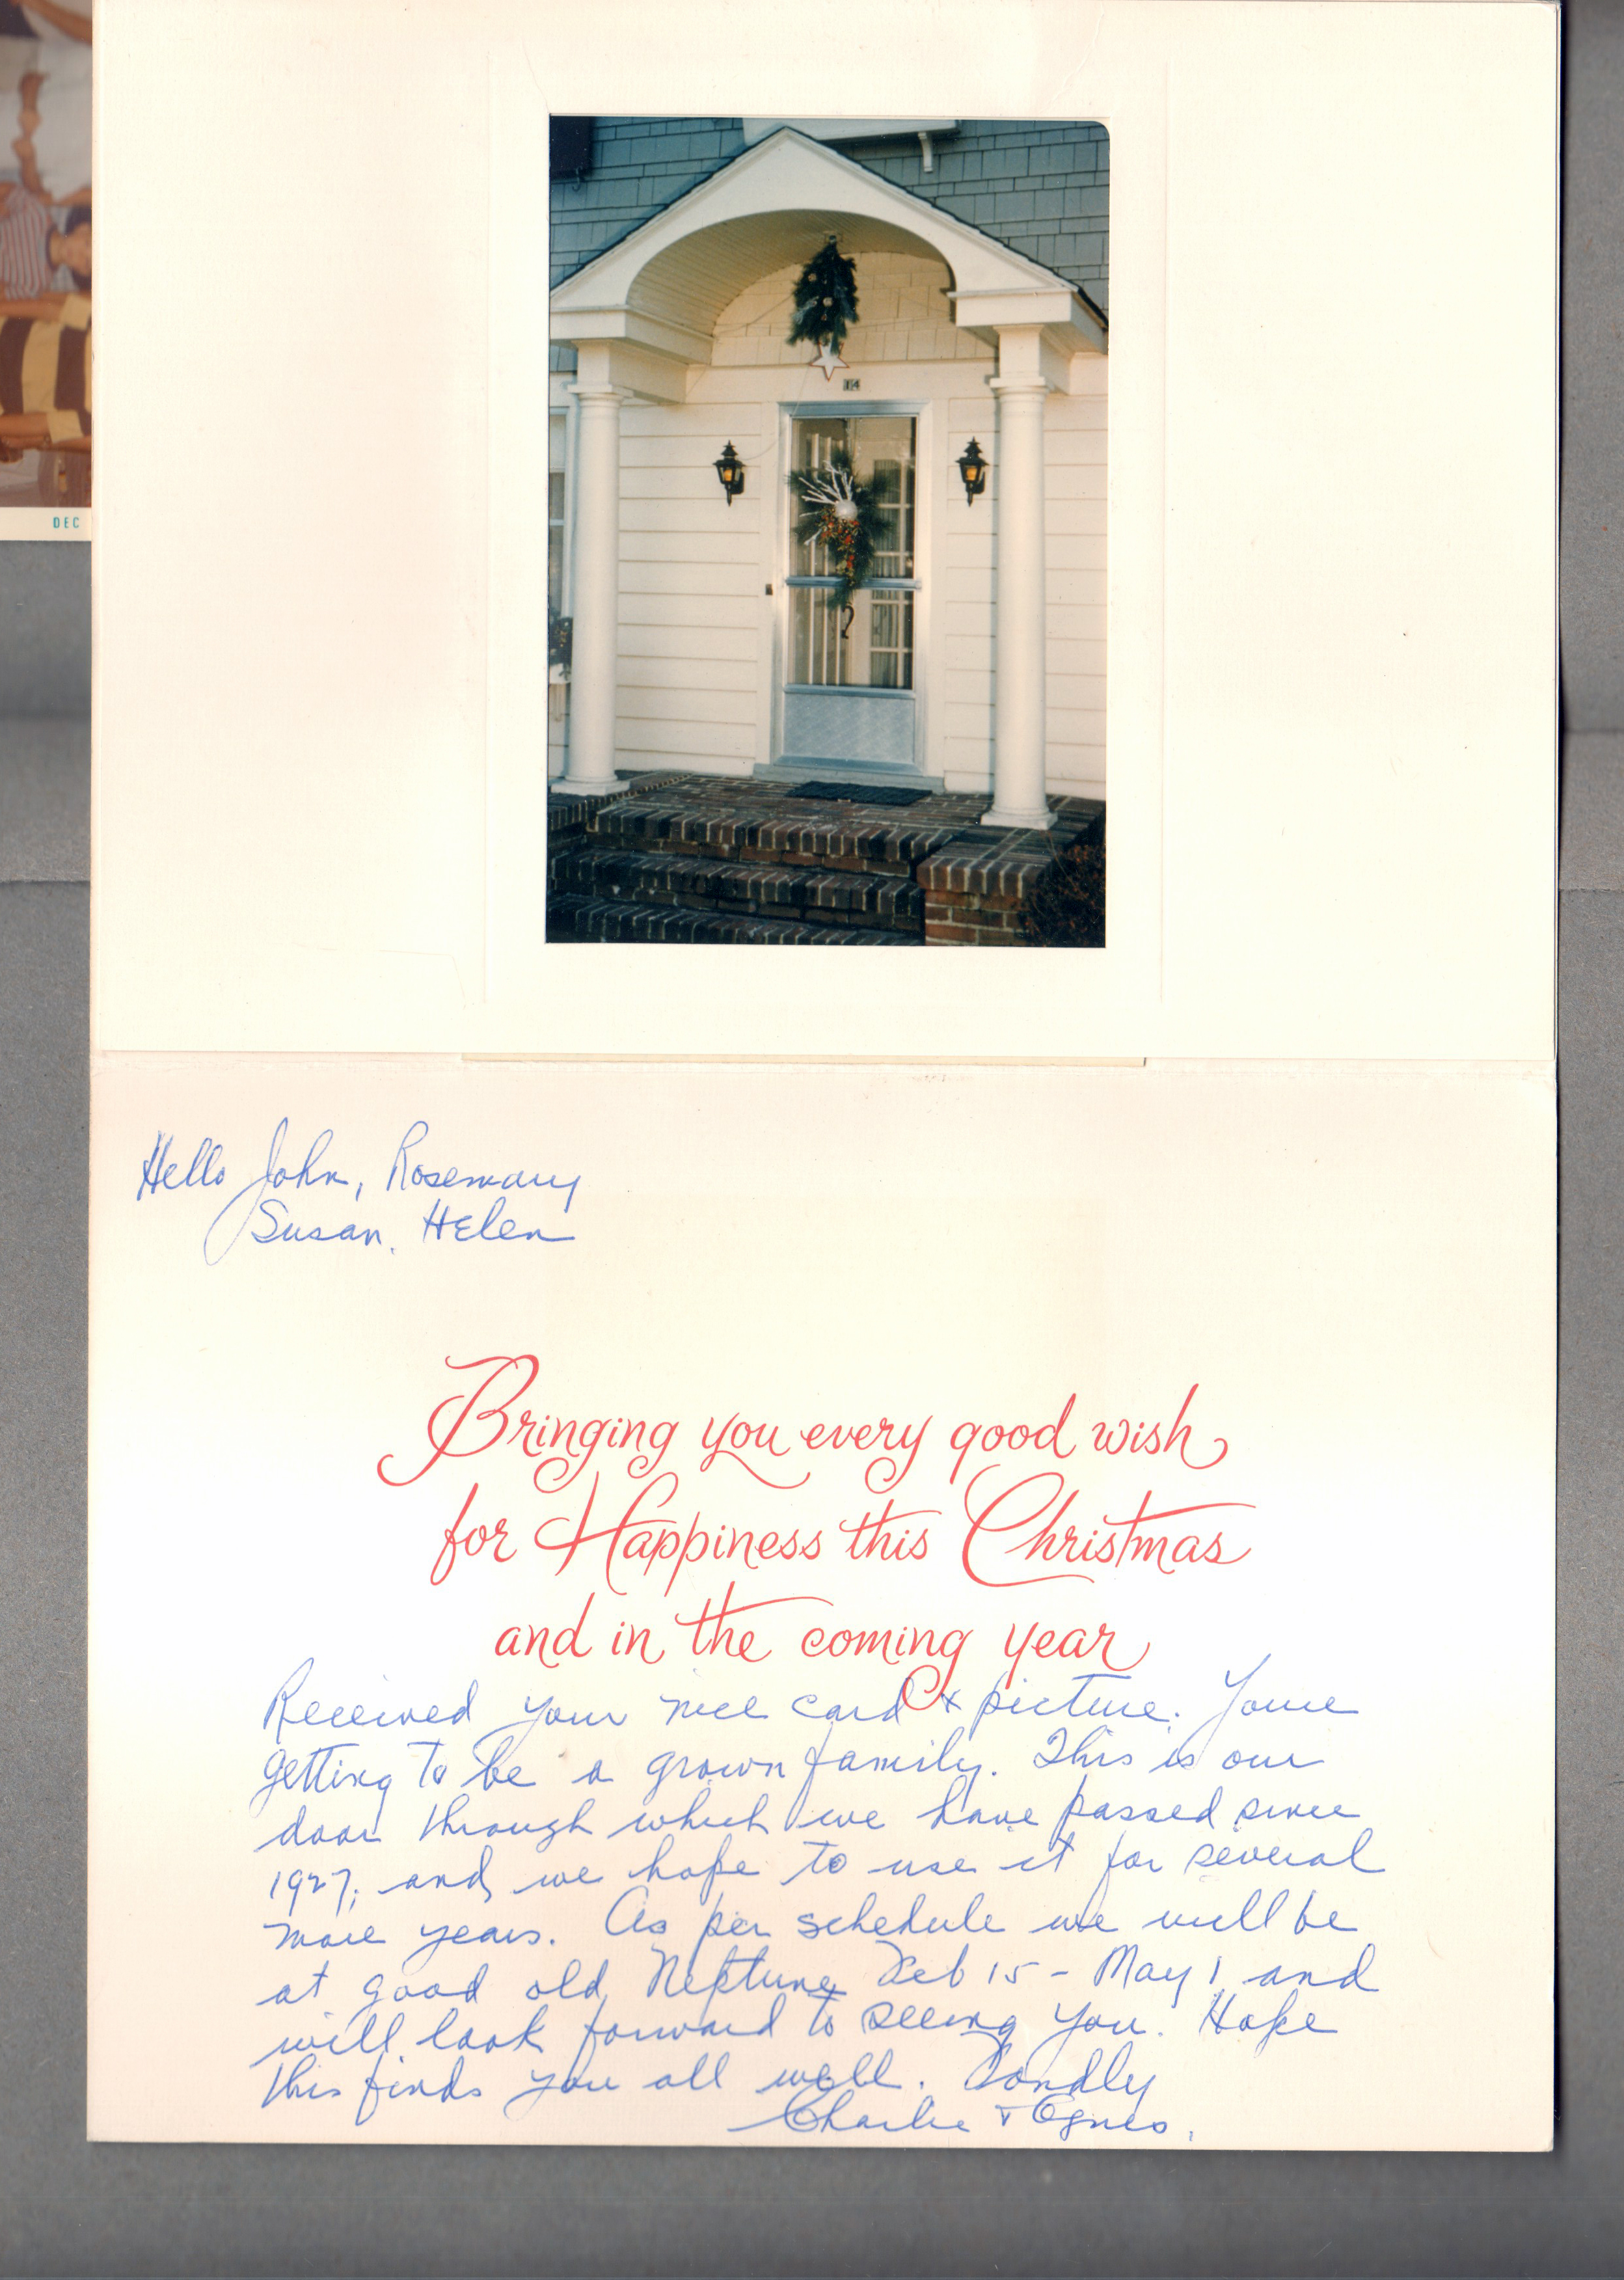 DEC
14
Hello John, Rosemary
Susan, Helen
Bringing you every good wish
for Happiness this Christmas
and in the coming year
Received your nice card & picture. Youre
getting to be a grown family. This is our
door through which we have passed since
1927, and we hope to use it for several
more years. As per schedule we will be
at good old Neptune Feb 15 - May 1 and
will look forward to seeing you. Hope
this finds you all well. Fondly
Charlie &